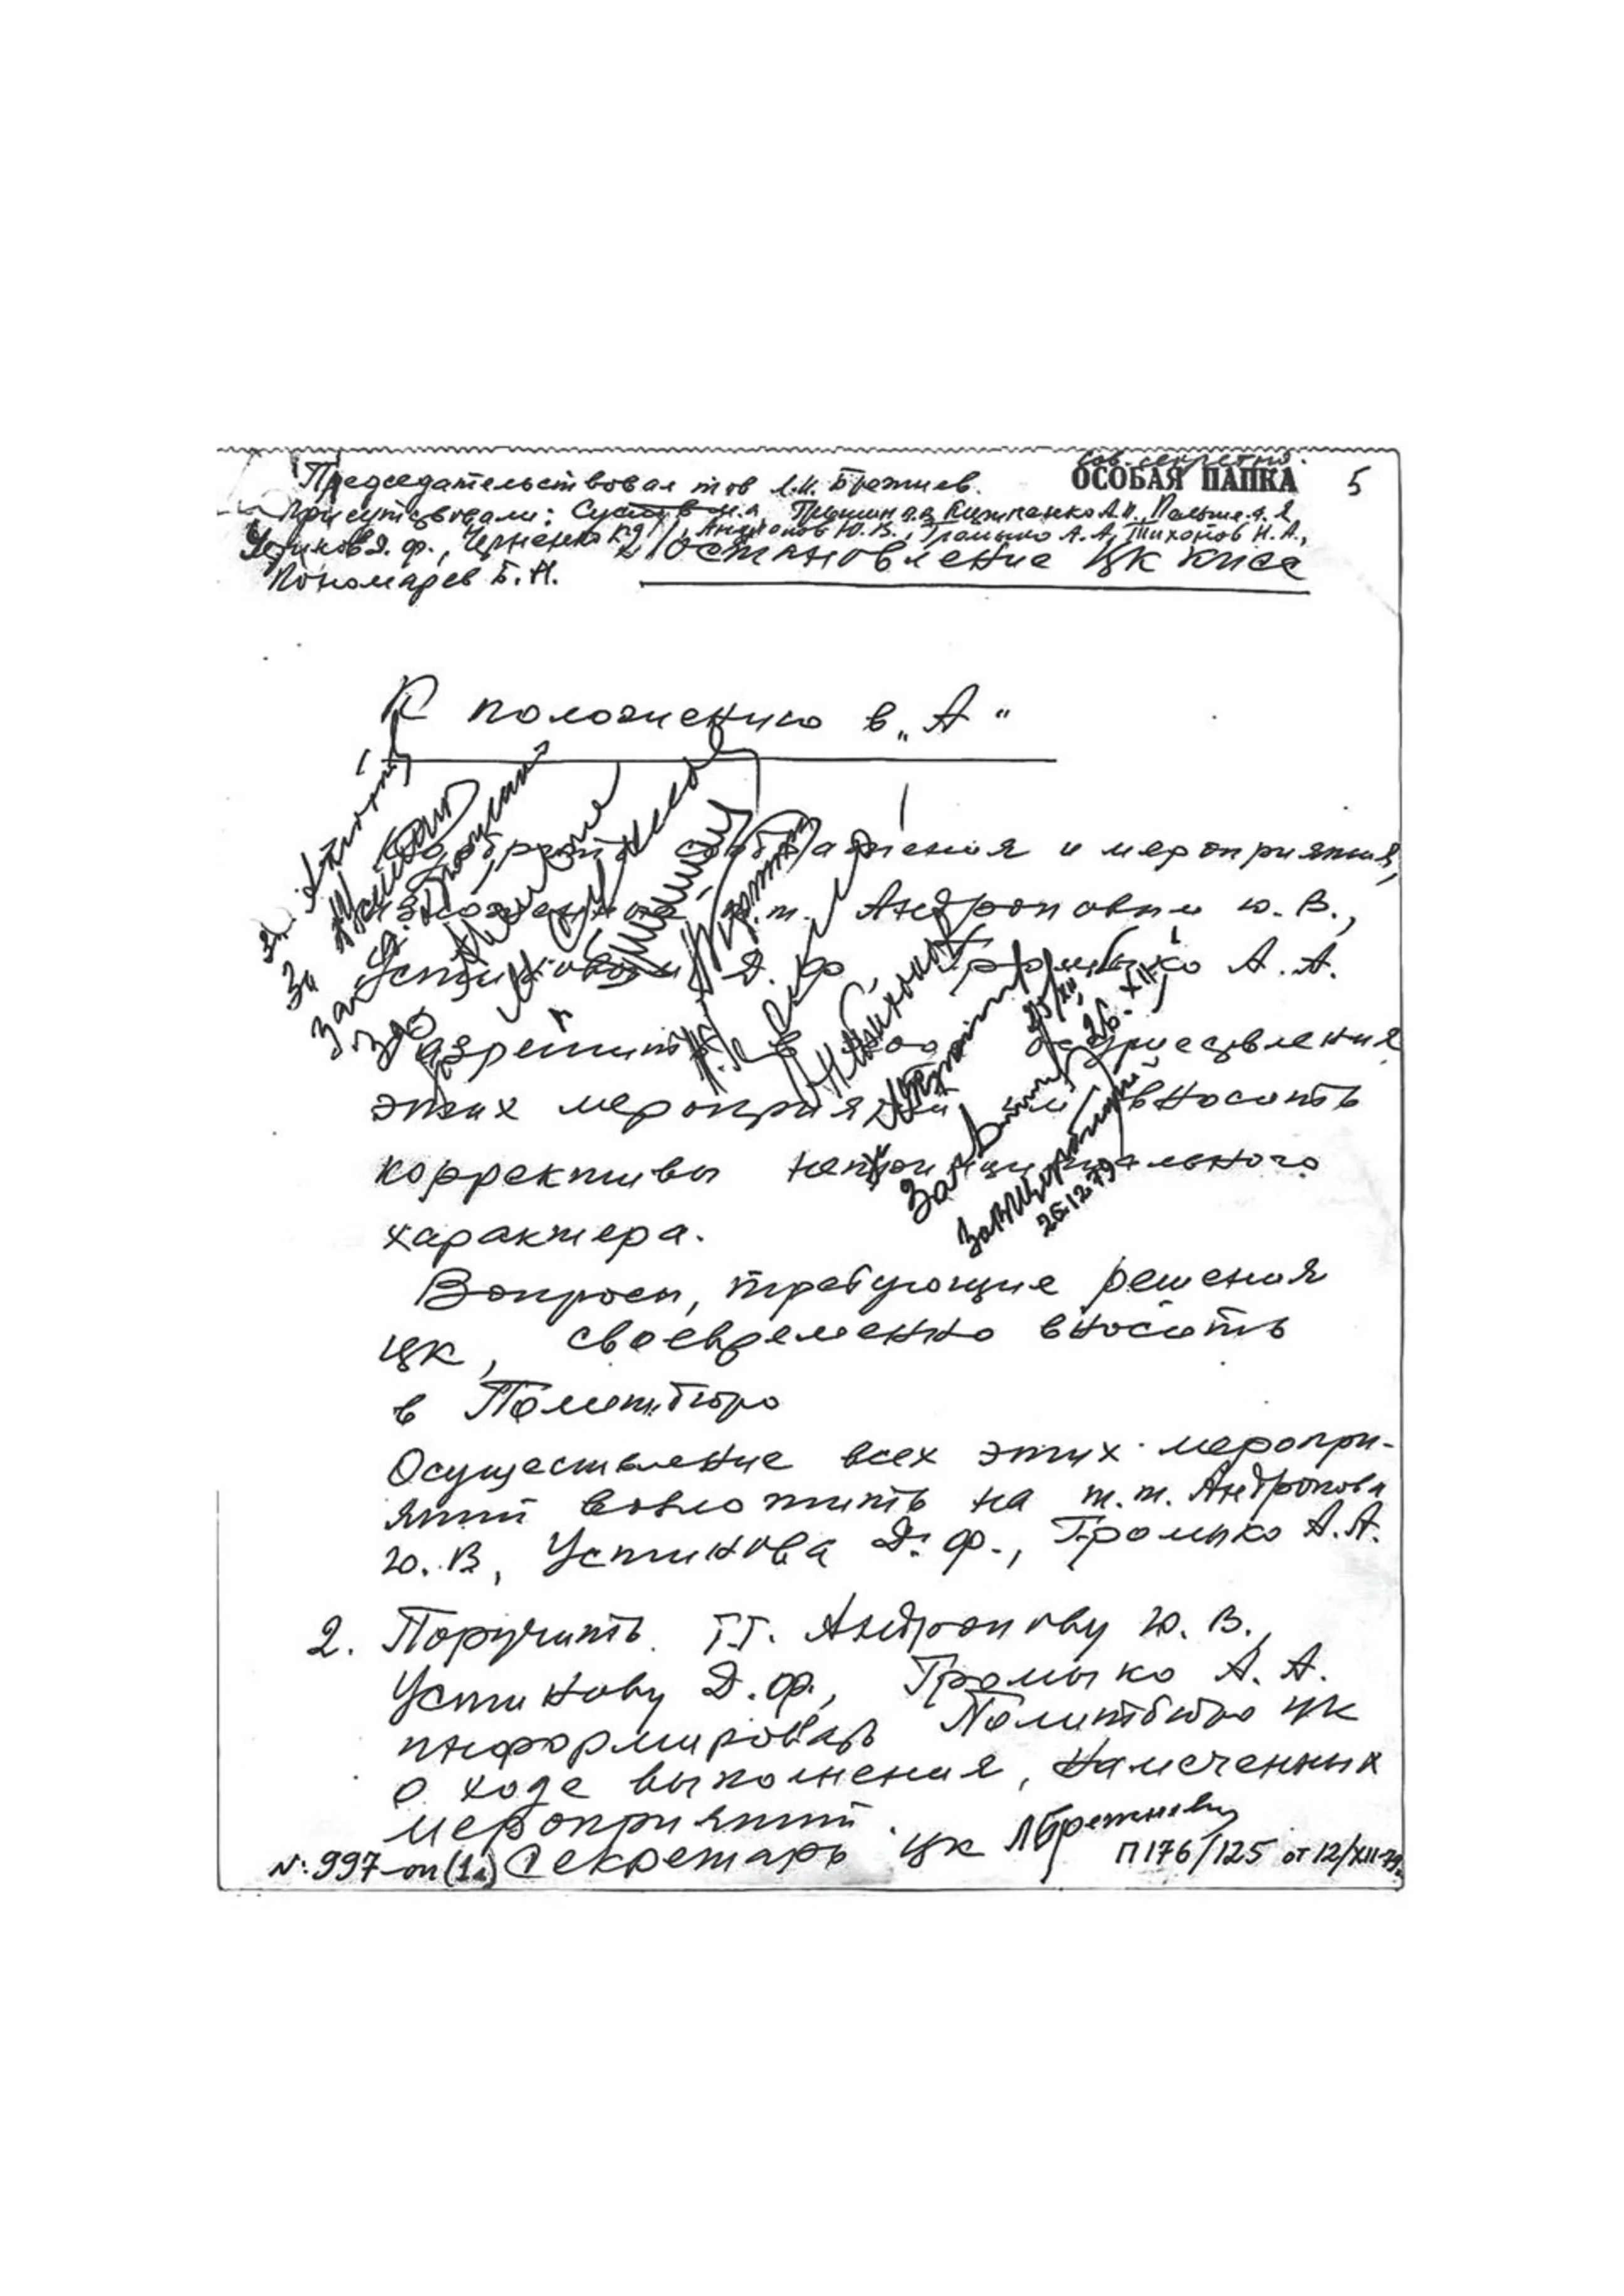 Сов. секретно.
ОСОБАЯ ПАПКА 5
Председательствовал тов. Л.И. Брежнев.
Присутствовали: Суслов М.А., Гришин В.В., Кириленко А.П., Пельше А.Я.
Устинов Д.Ф., Черненко К.У., Андропов Ю.В., Громыко А.А., Тихонов Н.А.,
Пономарев Б.Н.
Постановление ЦК КПСС
К положению в „А"
1. Одобрить соображения и мероприятия,
изложенные т.т. Андроповым Ю.В.,
Устиновым Д.Ф., Громыко А.А.
Разрешить в ходе осуществления
этих мероприятий им вносить
коррективы непринципиального
характера.
Вопросы, требующие решения
ЦК, своевременно вносить
в Политбюро
Осуществление всех этих меропри-
ятий возложить на т.т. Андропова
Ю.В, Устинова Д.Ф., Громыко А.А.
2. Поручить т.т. Андропову Ю.В.,
Устинову Д.Ф., Громыко А.А.
информировать Политбюро ЦК
о ходе выполнения, намеченных
мероприятий.
Секретарь ЦК Л Брежнев
№: 997-оп (1л) П176/125 от 12/XII-79г.
За Андропов
За Устинов
За Громыко
За
Н. Тихонов
25/XII
26.XII
За
За Щербицкий
26.12.79